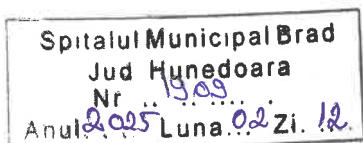 Spitalul Municipal Brad
Jud Hunedoara
Nr .. 1909 ........
Anul 2025 Luna 02 Zi. 12.